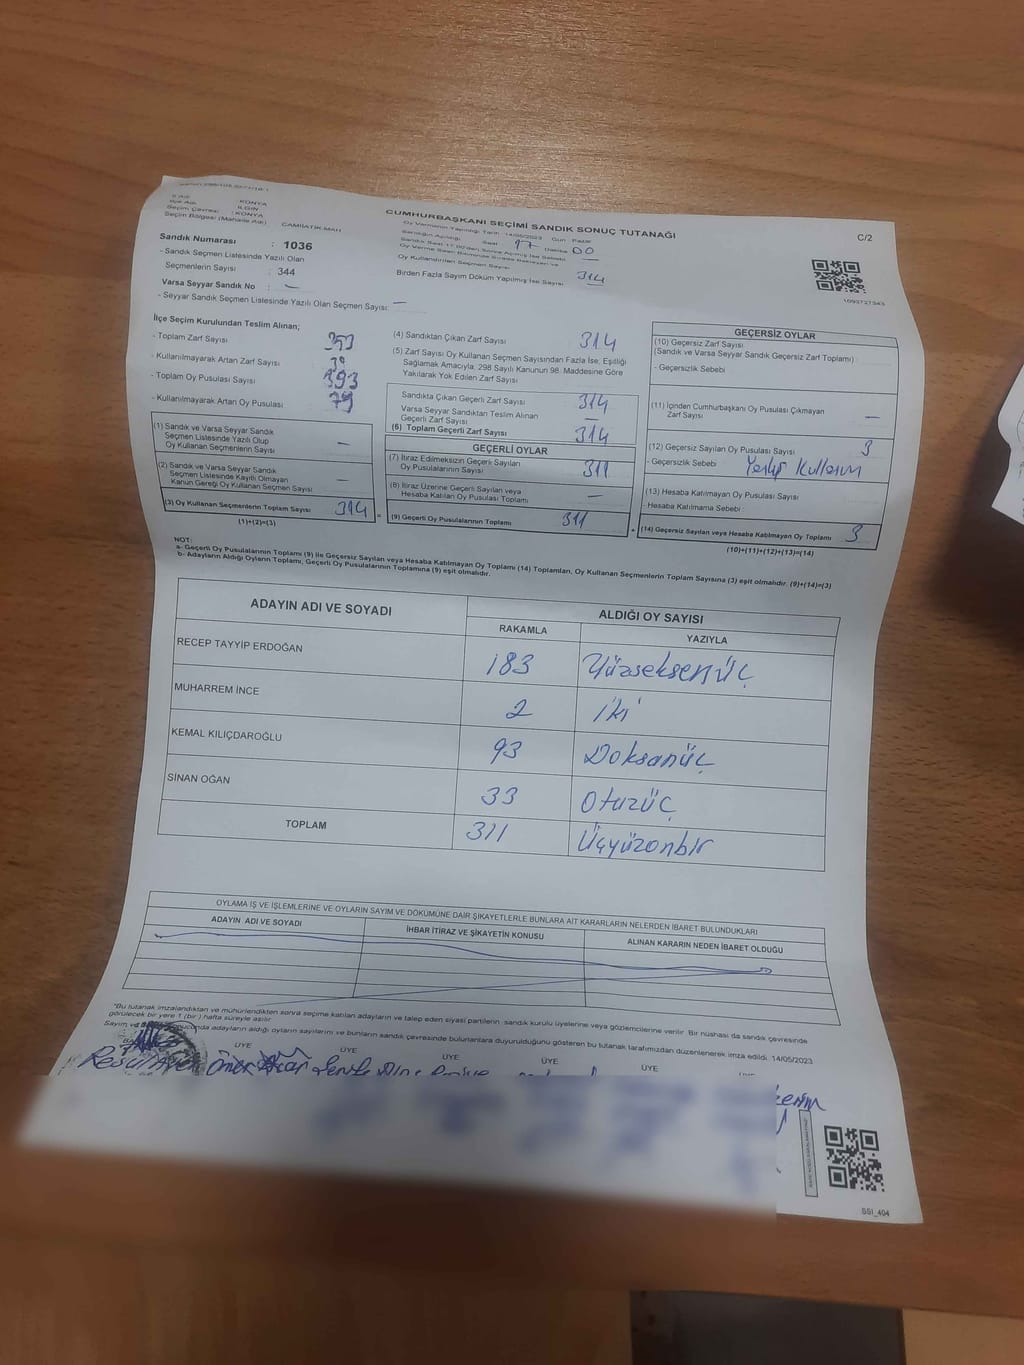 İli : KONYA
İlçe Adı : ILGIN
Seçim Çevresi : KONYA
Seçim Bölgesi (Mahalle Adı) : CAMİİATİK MAH.
CUMHURBAŞKANI SEÇİMİ SANDIK SONUÇ TUTANAĞI
C/2
Oy Vermenin Yapıldığı Tarih : 14/05/2023 Gün : Pazar
Sandığın Açıldığı Saat 17 Dakika 00
Oy Kullandırılan Seçmen Sayısı
Birden Fazla Sayım Döküm Yapılmış İse Sayısı 314
1093727343
Sandık Numarası : 1036
- Sandık Seçmen Listesinde Yazılı Olan
Seçmenlerin Sayısı : 344
Varsa Seyyar Sandık No : —
- Seyyar Sandık Seçmen Listesinde Yazılı Olan Seçmen Sayısı: —
İlçe Seçim Kurulundan Teslim Alınan;
- Toplam Zarf Sayısı
- Kullanılmayarak Artan Zarf Sayısı :
- Toplam Oy Pusulası Sayısı 393
- Kullanılmayarak Artan Oy Pusulası 79
(1) Sandık ve Varsa Seyyar Sandık
Seçmen Listesinde Yazılı Olup
Oy Kullanan Seçmenlerin Sayısı —
(2) Sandık ve Varsa Seyyar Sandık
Seçmen Listesinde Kayıtlı Olmayan
Kanun Gereği Oy Kullanan Seçmen Sayısı —
(3) Oy Kullanan Seçmenlerin Toplam Sayısı 314 =
(1)+(2)=(3)
(4) Sandıktan Çıkan Zarf Sayısı 314
(5) Zarf Sayısı Oy Kullanan Seçmen Sayısından Fazla İse; Eşitliği
Sağlamak Amacıyla, 298 Sayılı Kanunun 98. Maddesine Göre
Yakılarak Yok Edilen Zarf Sayısı
Sandıkta Çıkan Geçerli Zarf Sayısı 314
Varsa Seyyar Sandıktan Teslim Alınan
Geçerli Zarf Sayısı —
(6) Toplam Geçerli Zarf Sayısı 314
GEÇERLİ OYLAR
(7) İtiraz Edilmeksizin Geçerli Sayılan
Oy Pusulalarının Sayısı 311
(8) İtiraz Üzerine Geçerli Sayılan veya
Hesaba Katılan Oy Pusulası Toplamı —
(9) Geçerli Oy Pusulalarının Toplamı 311 +
GEÇERSİZ OYLAR
(10) Geçersiz Zarf Sayısı
(Sandık ve Varsa Seyyar Sandık Geçersiz Zarf Toplamı)
- Geçersizlik Sebebi
(11) İçinden Cumhurbaşkanı Oy Pusulası Çıkmayan
Zarf Sayısı —
(12) Geçersiz Sayılan Oy Pusulası Sayısı 3
- Geçersizlik Sebebi
(13) Hesaba Katılmayan Oy Pusulası Sayısı
- Hesaba Katılmama Sebebi
(14) Geçersiz Sayılan veya Hesaba Katılmayan Oy Toplamı 3
(10)+(11)+(12)+(13)=(14)
NOT:
a- Geçerli Oy Pusulalarının Toplamı (9) ile Geçersiz Sayılan veya Hesaba Katılmayan Oy Toplamı (14) Toplamları, Oy Kullanan Seçmenlerin Toplam Sayısına (3) eşit olmalıdır. (9)+(14)=(3)
b- Adayların Aldığı Oyların Toplamı, Geçerli Oy Pusulalarının Toplamına (9) eşit olmalıdır.
ADAYIN ADI VE SOYADI
ALDIĞI OY SAYISI
RAKAMLA YAZIYLA
RECEP TAYYİP ERDOĞAN 183 Yüzseksenüç
MUHARREM İNCE 2 iki
KEMAL KILIÇDAROĞLU 93 Doksanüç
SİNAN OĞAN 33 Otuzüç
TOPLAM 311 Üçyüzonbir
OYLAMA İŞ VE İŞLEMLERİNE VE OYLARIN SAYIM VE DÖKÜMÜNE DAİR ŞİKAYETLERLE BUNLARA AİT KARARLARIN NELERDEN İBARET BULUNDUKLARI
ADAYIN ADI VE SOYADI İHBAR İTİRAZ VE ŞİKAYETİN KONUSU ALINAN KARARIN NEDEN İBARET OLDUĞU
*Bu tutanak imzalandıktan ve mühürlendikten sonra seçime katılan adayların ve talep eden siyasi partilerin sandık kurulu üyelerine veya gözlemcilerine verilir. Bir nüshası da sandık çevresinde
görülecek bir yere 1 (bir) hafta süreyle asılır.
Sayım ve sonucunda adayların aldığı oyların sayılarını ve bunların sandık çevresinde bulunanlara duyurulduğunu gösteren bu tutanak tarafımızdan düzenlenerek imza edildi. 14/05/2023
ÜYE ÜYE ÜYE ÜYE ÜYE
SSİ_404